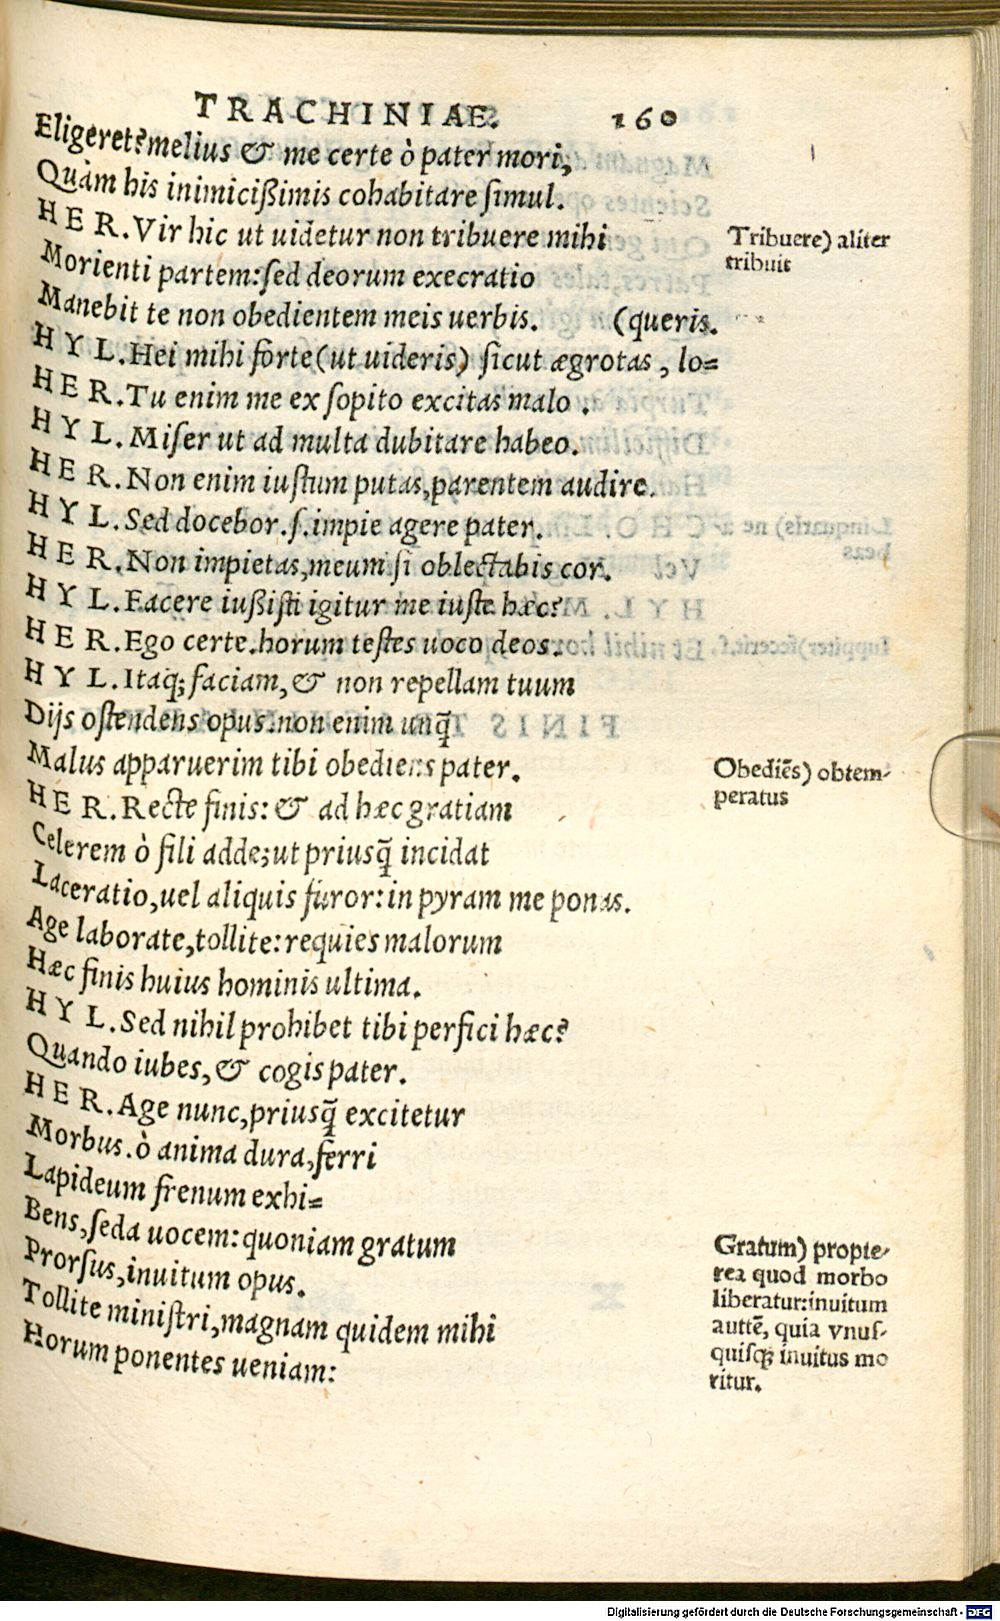 TRACHINIAE. 160
Eligeret? melius & me certe ò pater mori,
Quàm his inimicißimis cohabitare ſimul.
HER. Vir hic ut uidetur non tribuere mihi
Morienti partem: ſed deorum execratio
Manebit te non obedientem meis uerbis. (queris.
HYL. Hei mihi forte (ut uideris) ſicut ægrotas, lo=
HER. Tu enim me ex ſopito excitas malo.
HYL. Miſer ut ad multa dubitare habeo.
HER. Non enim iuſtum putas, parentem audire.
HYL. Sed docebor. ſ. impie agere pater.
HER. Non impietas, meum ſi oblectabis cor.
HYL. Facere iußiſti igitur me iuſte hæc?
HER. Ego certe. horum teſtes uoco deos.
HYL. Itaq; faciam, & non repellam tuum
Dijs oſtendens opus. non enim unq̃
Malus apparuerim tibi obediens pater.
HER. Recte finis: & ad hæc gratiam
Celerem ò fili adde; ut priusq̃ incidat
Laceratio, uel aliquis furor: in pyram me ponas.
Age laborate, tollite: requies malorum
Hæc finis huius hominis ultima.
HYL. Sed nihil prohibet tibi perfici hæc?
Quando iubes, & cogis pater.
HER. Age nunc, priusq̃ excitetur
Morbus. ò anima dura, ferri
Lapideum frenum exhi=
Bens, ſeda uocem: quoniam gratum
Prorſus, inuitum opus.
Tollite miniſtri, magnam quidem mihi
Horum ponentes ueniam:
Tribuere) aliter
tribuit
Obediẽs) obtem-
peratus
Gratum) propte-
rea quod morbo
liberatur: inuitum
auttẽ, quia vnuſ-
quiſq; inuitus mo
ritur.
Digitalisierung gefördert durch die Deutsche Forschungsgemeinschaft - DFG